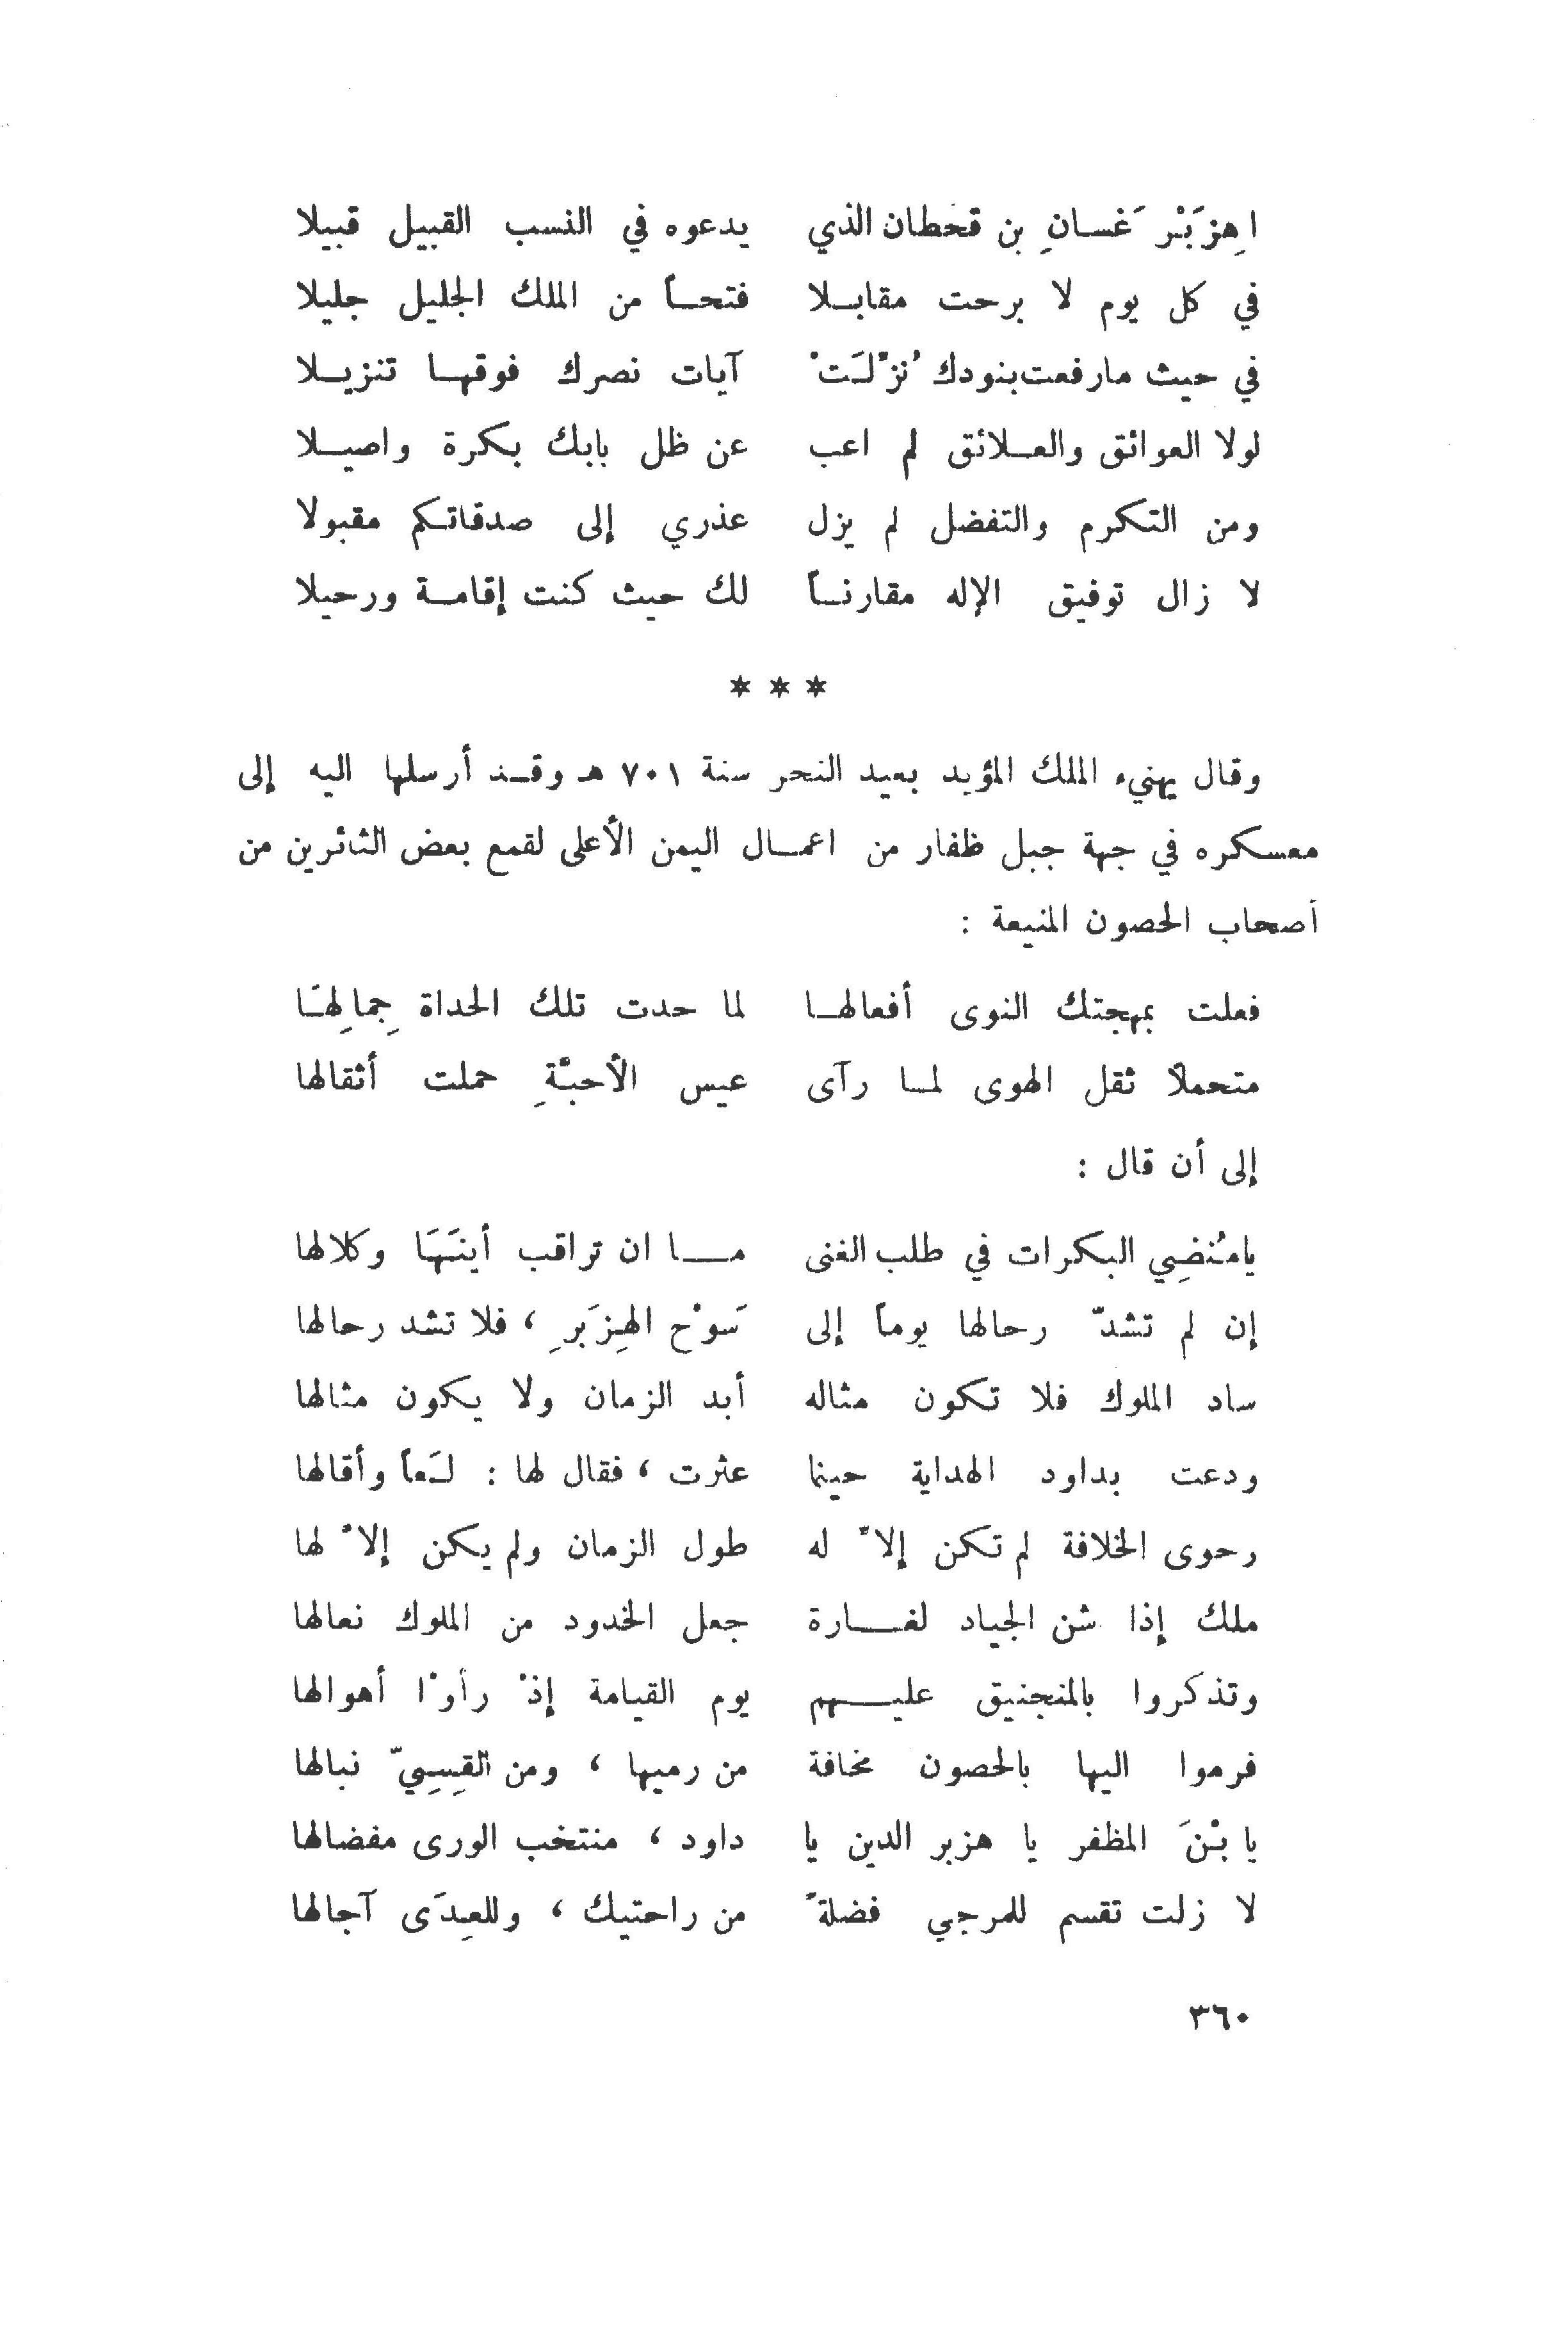 اهِزَبْرَ غسانِ بن قحطان الذي يدعوه في النسب القبيل قبيلا
في كل يوم لا برحت مقابلا فتحاً من الملك الجليل جليلا
في حيث مارفعت بنودك نُزّلَتْ آيات نصرك فوقها تنزيلا
لولا العوائق والعلائق لم اعب عن ظل بابك بكرة واصيلا
ومن التكرم والتفضل لم يزل عذري إلى صدقاتكم مقبولا
لا زال توفيق الإله مقارناً لك حيث كنت إقامة ورحيلا
* * *
وقال يهنيء الملك المؤيد بعيد النحر سنة ٧٠١ هـ وقد أرسلها اليه إلى
معسكره في جهة جبل ظفار من اعمال اليمن الأعلى لقمع بعض الثائرين من
أصحاب الحصون المنيعة :
فعلت بمهجتك النوى أفعالها لما حدت تلك الحداة جِمالِهَا
متحملاً ثقل الهوى لما رآى عيس الأحبَّةِ حملت أثقالها
إلى أن قال :
يامُنضِي البكرات في طلب الغنى ما ان تراقب أينَهَا وكلالها
إن لم تشدّ رحالها يوماً إلى سَوْح الهِزَبرِ ، فلا تشد رحالها
ساد الملوك فلا تكون مثاله أبد الزمان ولا يكون مثالها
ودعت بداود الهداية حينما عثرت ، فقال لها : لَعاً وأقالها
رحوى الخلافة لم تكن إلاّ له طول الزمان ولم يكن إلاّ لها
ملك إذا شن الجياد لغارة جعل الخدود من الملوك نعالها
وتذكروا بالمنجنيق عليهم يوم القيامة إذْ رأوْا أهوالها
فرموا اليها بالحصون مخافة من رميها ، ومن القِسِيّ نبالها
يا بْنَ المظفر يا هزبر الدين يا داود ، منتخب الورى مفضالها
لا زلت تقسم للمرجي فضلةً من راحتيك ، وللعِدَى آجالها
٣٦٠